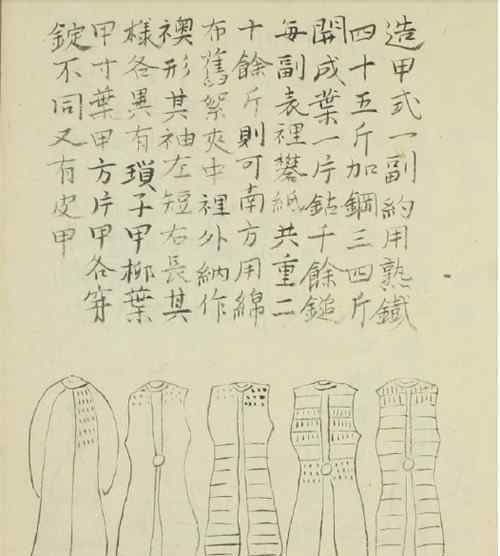 造甲式一副約用熟鐵
四十五斤加鋼三四斤
開成葉一片鉆千餘鎚
每副表裡襻紙共重二
十餘斤則可南方用綿
布舊絮夾中裡外納作
襖形其袖左短右長其
樣各異有瑣子甲柳葉
甲寸葉甲方片甲各穿
錠不同又有皮甲